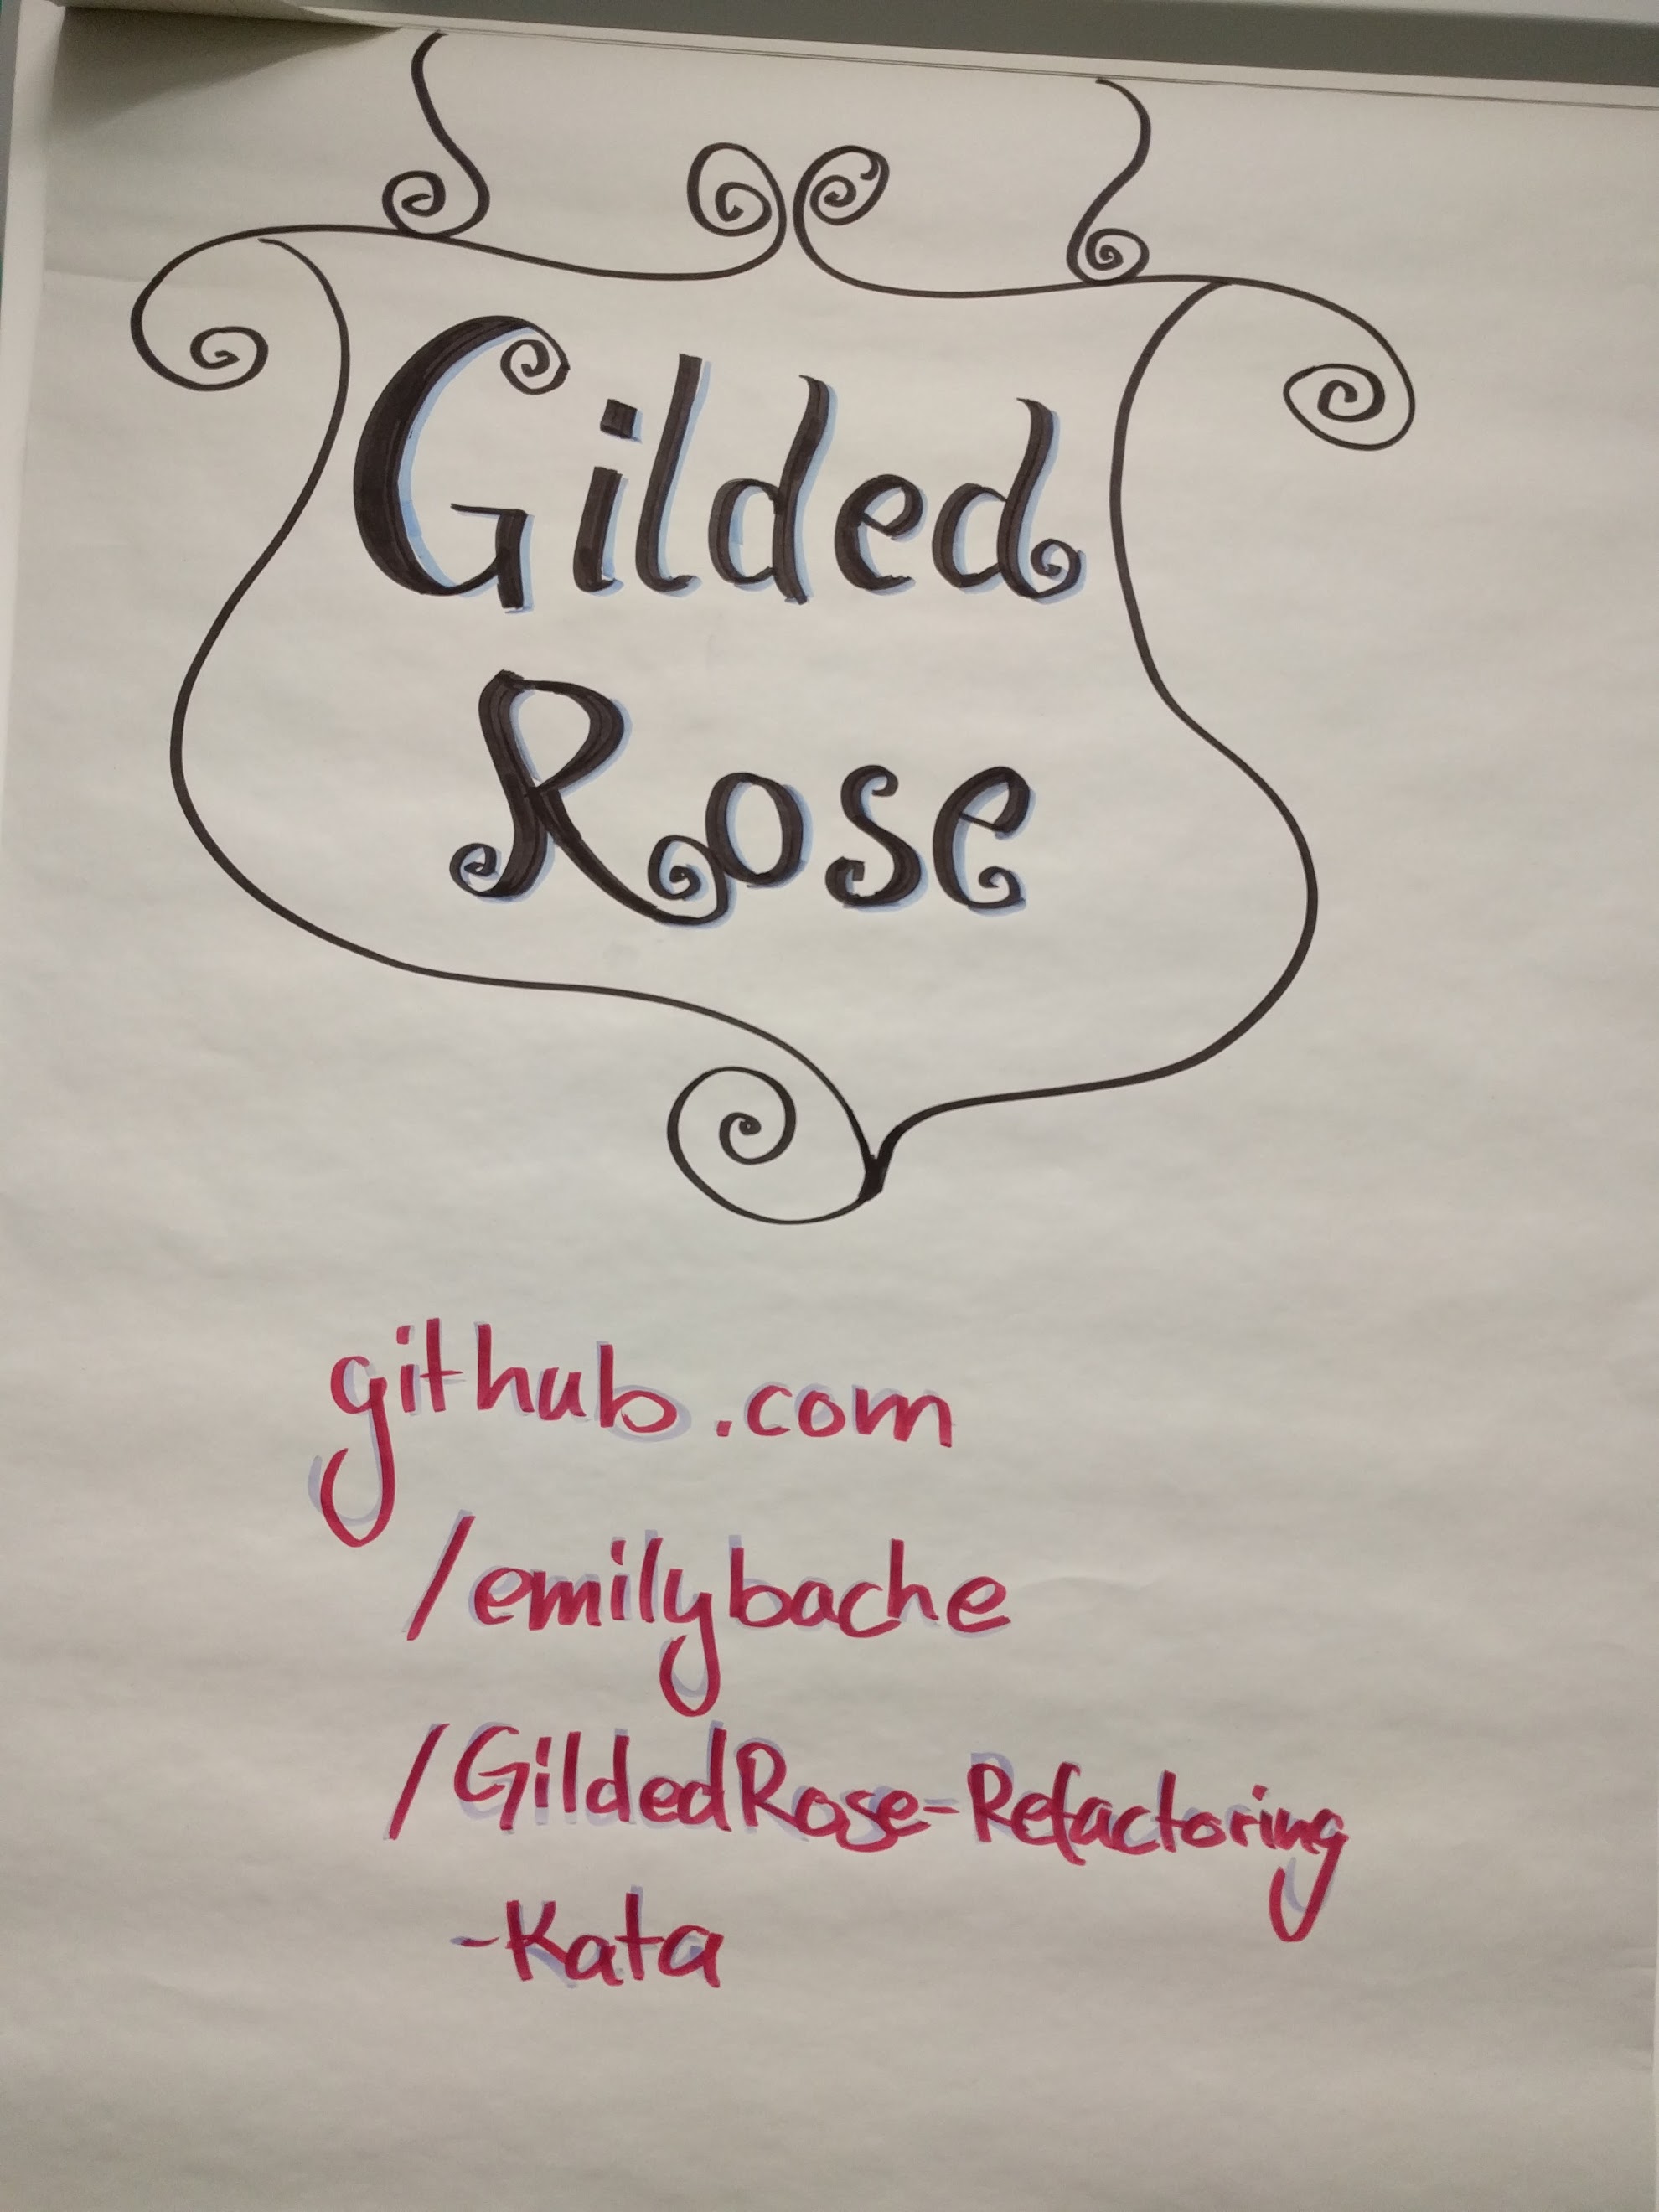 Gilded
Rose
github.com
/emilybache
/GildedRose-Refactoring
-Kata